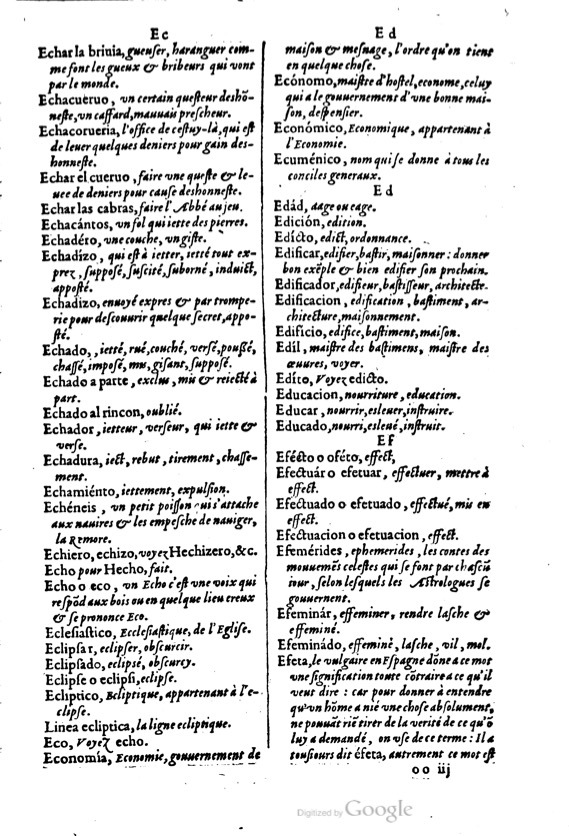 Ec
Echar la briuia, gueuser, haranguer com-
me font les gueux & bribeurs qui vont
par le monde.
Echacueruo, vn certain questeur deshō-
neste, vn caffard, mauuais prescheur.
Echacorueria, l'office de cestuy-là, qui est
de leuer quelques deniers pour gain des-
honneste.
Echar el cueruo, faire vne queste & le-
uee de deniers pour cause deshonneste.
Echar las cabras, faire l'Abbé au jeu.
Echacántos, vn fol qui iette des pierres.
Echadéro, vne couche, vn giste.
Echadízo, qui est à ietter, ietté tout ex-
prez, supposé, suscité, suborné, induict,
apposté.
Echadizo, enuoyé expres & par trompe-
rie pour descouurir quelque secret, appo-
sté.
Echado,, ietté, rué, couché, versé, poussé,
chassé, imposé, mus, gisant, supposé.
Echado a parte, exclus, mis & reietté à
part.
Echado al rincon, oublié.
Echador, ietteur, verseur, qui iette &
verse.
Echadura, iect, rebut, tirement, chasse-
ment.
Echamiénto, iettement, expulsion.
Echéneis, vn petit poisson qui s'attache
aux nauires & les empesche de nauiger,
la Remore.
Echiero, echizo, voyez Hechizero, &c.
Echo pour Hecho, fait.
Echo o eco, vn Echo c'est vne voix qui
respōd aux bois ou en quelque lieu creux
& se prononce Eco.
Eclesiastico, Ecclesiastique, de l'Eglise.
Eclipsar, eclipser, obscurcir.
Eclipsado, eclipsé, obscurcy.
Eclipse o eclipsi, eclipse.
Ecliptico, Ecliptique, appartenant à l'e-
clipse.
Linea ecliptica, la ligne ecliptique.
Eco, Voyez echo.
Economía, Economie, gouuernement de
Ed
maison & mesnage, l'ordre qu'on tient
en quelque chose.
Ecónomo, maistre d'hostel, econome, celuy
qui a le gouuernement d'vne bonne mai-
son, despensier.
Económico, Economique, appartenant à
l'Economie.
Ecuménico, nom qui se donne à tous les
conciles generaux.
Ed
Edád, aage ou eage.
Edición, edition.
Edícto, edict, ordonnance.
Edificar, edifier, bastir, maisonner: donner
bon exēple & bien edifier son prochain.
Edificador, edifieur, bastisseur, architecte.
Edificacion, edification, bastiment, ar-
chitecture, maisonnement.
Edificio, edifice, bastiment, maison.
Edíl, maistre des bastimens, maistre des
œuures, voyer.
Edíto, Voyez edicto.
Educacion, nourriture, education.
Educar, nourrir, esleuer, instruire.
Educado, nourri, esleué, instruit.
Ef
Efécto o oféto, effect.
Efectuár o efetuar, effectuer, mettre à
effect.
Efectuado o efetuado, effectué, mis en
effect.
Efectuacion o efetuacion, effect.
Efemérides, ephemerides, les contes des
mouuemēs celestes qui se font par chascū
iour, selon lesquels les Astrologues se
gouuernent.
Efeminár, effeminer, rendre lasche &
effeminé.
Efeminádo, effeminé, lasche, vil, mol.
Efeta, le vulgaire en Espagne dōne a ce mot
vne signification toute cōtraire a ce qu'il
veut dire: car pour donner à entendre
qu'vn hōme a nié vne chose absolument,
ne pouuāt riē tirer de la verité de ce qu'ō
luy a demandé, on vse de ce terme: Il a
tousiours dit éfeta, autrement ce mot est
oo iij
Digitized by Google